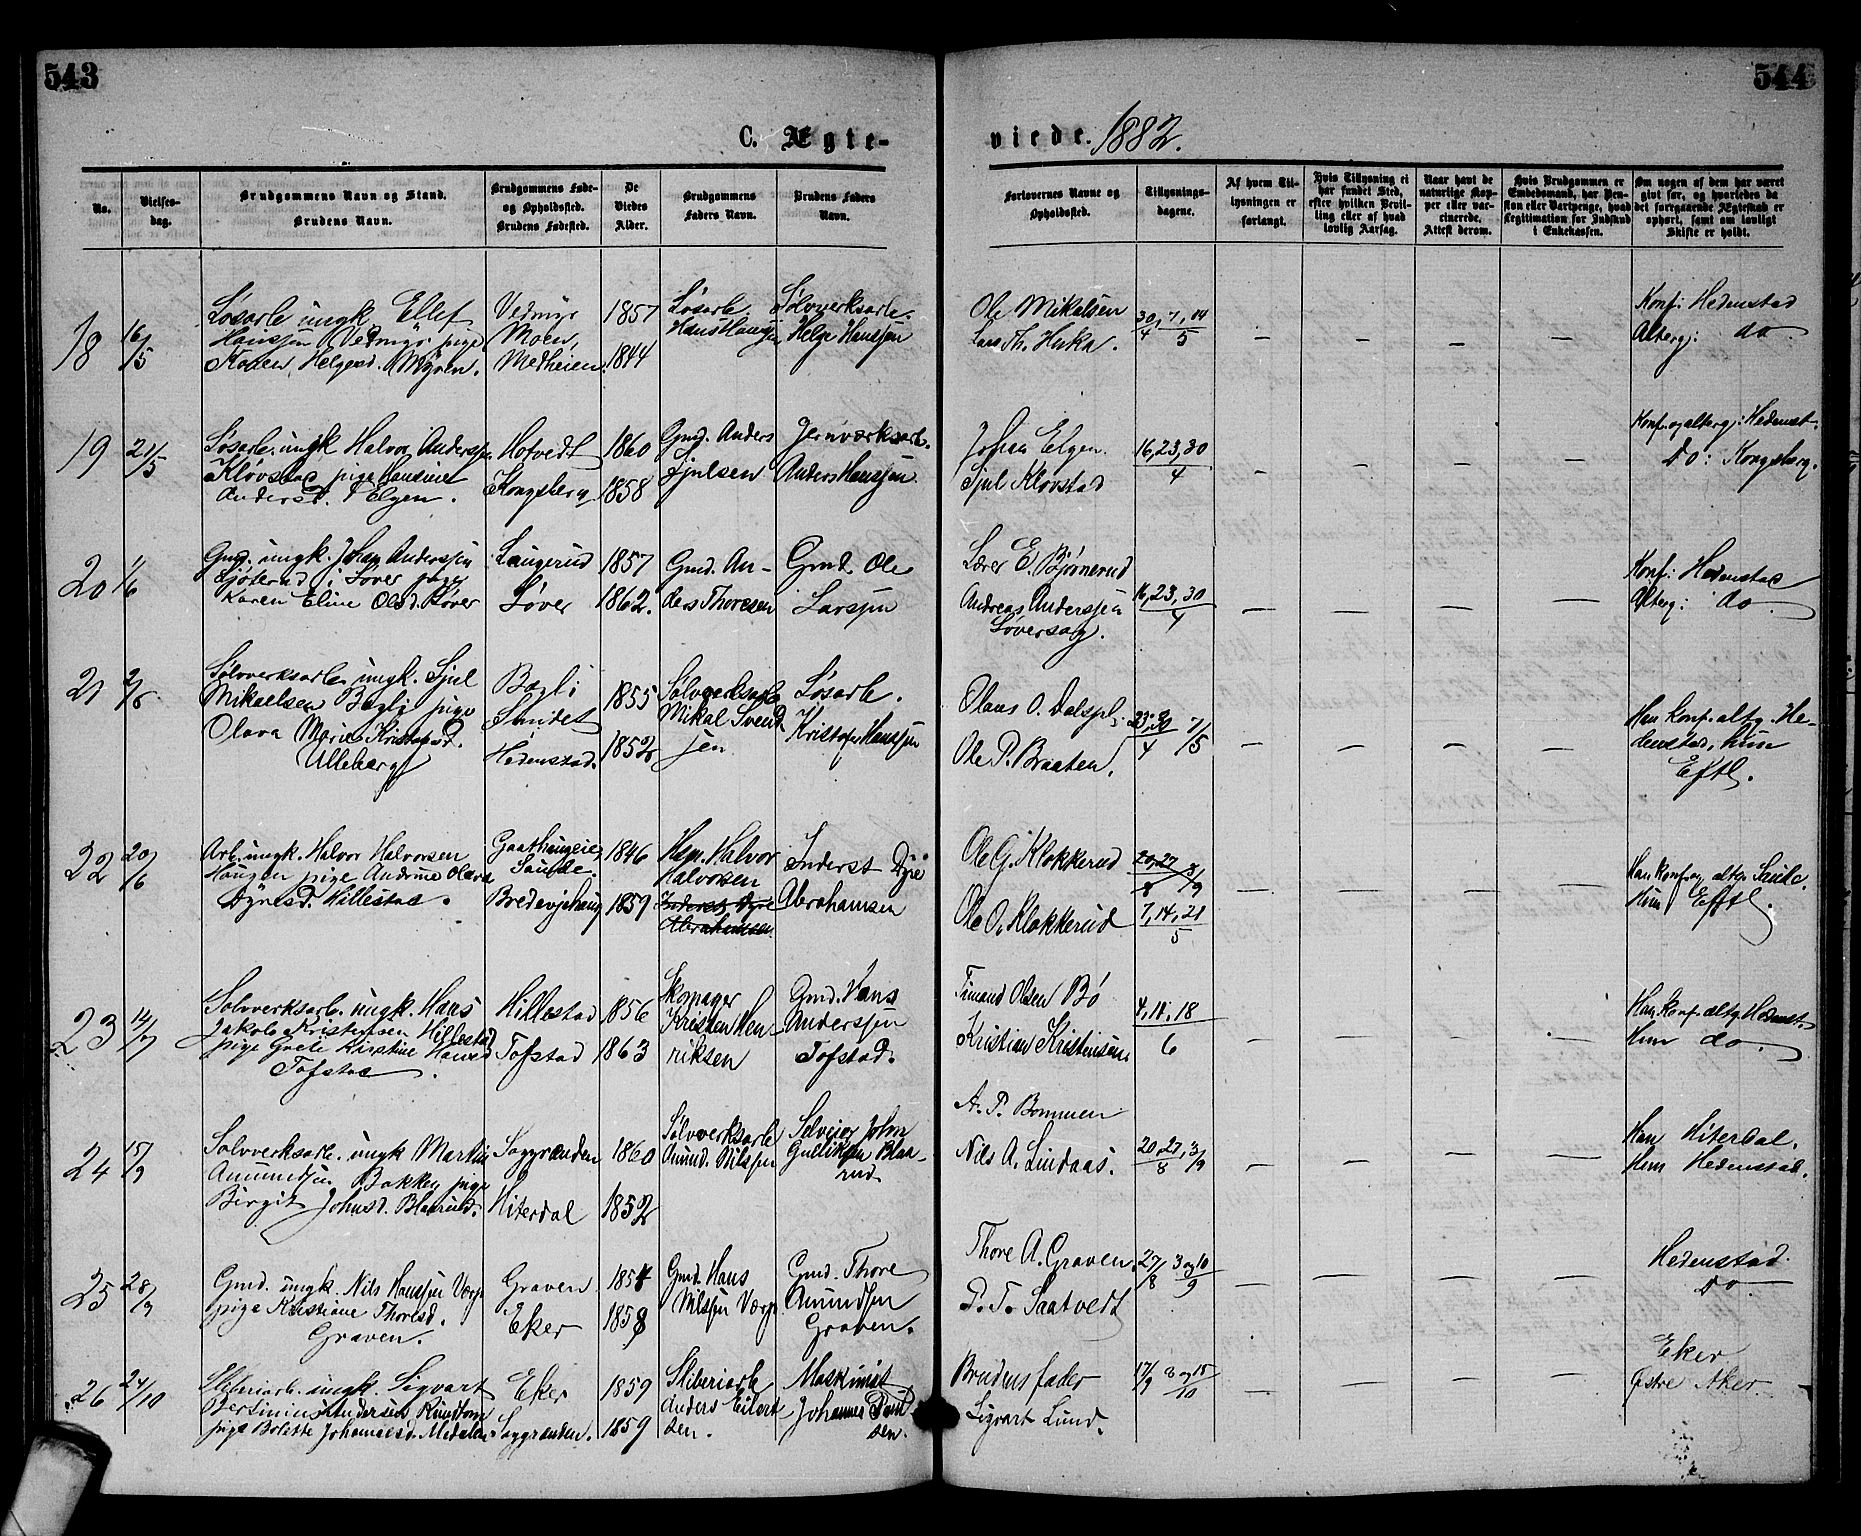 543
544
C. Ægte-
viede. 1882.
No.
Vielses-
dag.
Brudgommens Navn og Stand.
Brudens Navn.
Brudgommens Føde-
og Opholdssted.
Brudens Fødested.
De
Viedes
Alder.
Brudgommens
Faders Navn.
Brudens Faders
Navn.
Forlovernes Navne og
Opholdssted.
Tillysnings-
dagene.
Af hvem Til-
lysningen er
forlangt.
Hvis Tillysning ei
har fundet Sted,
efter hvilken Bevil-
ling eller af hvad
lovlig Aarsag.
Naar havt de
naturlige Kop-
per eller vac-
cinerede.
Attest derom.
Hvis Brudgommen er
Embedsmand, har Pen-
sion eller Vartpenge, hvad
Legitimation for Indskud
i Enkekassen.
Om nogen af dem har været
givt før, og hvorledes da
det foregaaende Ægteskab er
ophørt, samt om lovligt
Skifte er holdt.
18
16/5
Løsarb. ungk. Ellef
Hanssen Vedmyr pige
Karen Helgesd. Myren.
Vedmyr
Moen,
Medheien
1857
1844
Løsarb.
Hans
Sølvværksarb.
Helge Hanssen
Ole Mikalsen
Lars Th. Huka.
30/4, 7, 14/5
— — — —
Konf: Hedenstad
Alterg: do
19
21/5
Løsarb. ungk. Halvor Anderssen
Kløvstad pige Hansine
Andersd. Elgen.
Hofvedt
Kongsberg
1860
1858
Gmd. Anders
Sjulsen
Jernværksarb.
Anders Hanssen
Johan Elgen.
Sjul Kløvstad
16, 23, 30/4
— — — —
Konf. og alterg: Hedenst.
Do: Kongsberg.
20
1/6
Gmd. ungk. Johan Anderssen
i Søver pige
Karen Eline Olsd. Søver
Laugerud
Søver
1857
1862.
Gmd. An-
ders Thoresen
Gmd. Ole
Larssen
Lærer E. Bjørnerud
Andreas Anderssen
Søversag.
16, 23, 30/4
— — — —
Konf: Hedenstad
Alterg: do
21
2/6
Sølvverksarb. ungk. Sjul
Mikaelsen Bagli pige
Olava Marie Kristofsd.
Ulleberg
Bagli
Sundet
Hedenstad.
1855
1852
Sølvverksarb.
Mikal Svend-
sen
Løsarb.
Kristofer Hanssen
Olaus O. Dalspl.
Ole P. Braaten.
23, 30/4 7/5
— — — —
Han konf. altg. He-
denstad, hun
Eftl.
22
20/6
Arb. ungk. Halvor Halvorsen
Haugen pige Andrine Olava
Dyresd. Hillestad.
Sande.
1846
1859
Hem. Halvor
Halvorsen
Inderst Dyre
Abrahamsen
Inderst Dyre
Abrahamsen
Ole G. Klokkerud
Ole O. Klokkerud
20, 27/8 3/9
7, 14, 21/5
— — — —
Han konf. og altg. Sande.
Hun Eftl.
23
14/7
Sølvverksarb. ungk. Hans
Jakob Kristensen Hillestad
pige Grete Kirstine Hansd.
Tofstad
Hillestad
Tofstad
1856
1863
Skomager
Kristen Hen-
riksen
Gmd. Hans
Anderssen
Tofstad.
Timand Olsen Bø
Kristian Kristensen
4, 11, 18/6
— — — —
Han konf. altg. Hedenst.
Hun do
24
15/9
Sølvverksarb. ungk. Martin
Amundsen Bakken pige
Birgit Johnsd. Blaarud.
Saggrænden
Hiterdal
1860
1852
Sølvverksarb.
Amund. Nilssen
Selveier John
Gulliksen Blaa-
rud.
A. P. Bommen
Nils A. Lindaas.
20, 27/8, 3/9
— — — —
Han Hiterdal.
Hun Hedenstad.
25
28/9
Gmd. ungk. Nils Hanssen Værp
pige Kristiane Thoresd.
Graven.
Graven
Eker
1854
1858
Gmd. Hans
Nilssen Værp
Gmd. Thore
Amundsen
Graven.
Thore A. Graven.
P. T. Saatvedt
27/8 3 og 10/9
— — — —
Hedenstad.
Do.
26
24/10
Sliberiarb. ungk. Sigvart
Andersen Rundtom
pige Bolette Johannesd. Medalen
Eker
Saggrænden.
1859
1859
Sliberiarb.
Anders Eilert-
sen.
Maskinist
Johannes
sen.
Brudens fader
Sigvart Lund.
17/9 8 og 15/10
— — — —
Eker
Østre Aker.